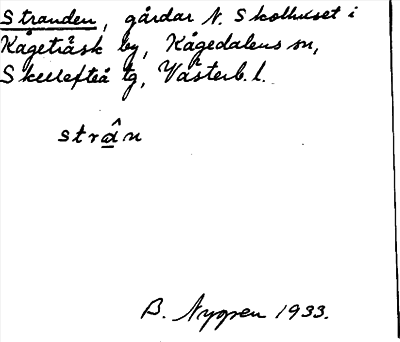 Stranden, gårdar N. Skolhuset i
Kågeträsk by, Kågedalens sn,
Skellefteå tg, Västerb. l.
strân
B. Nygren 1933.